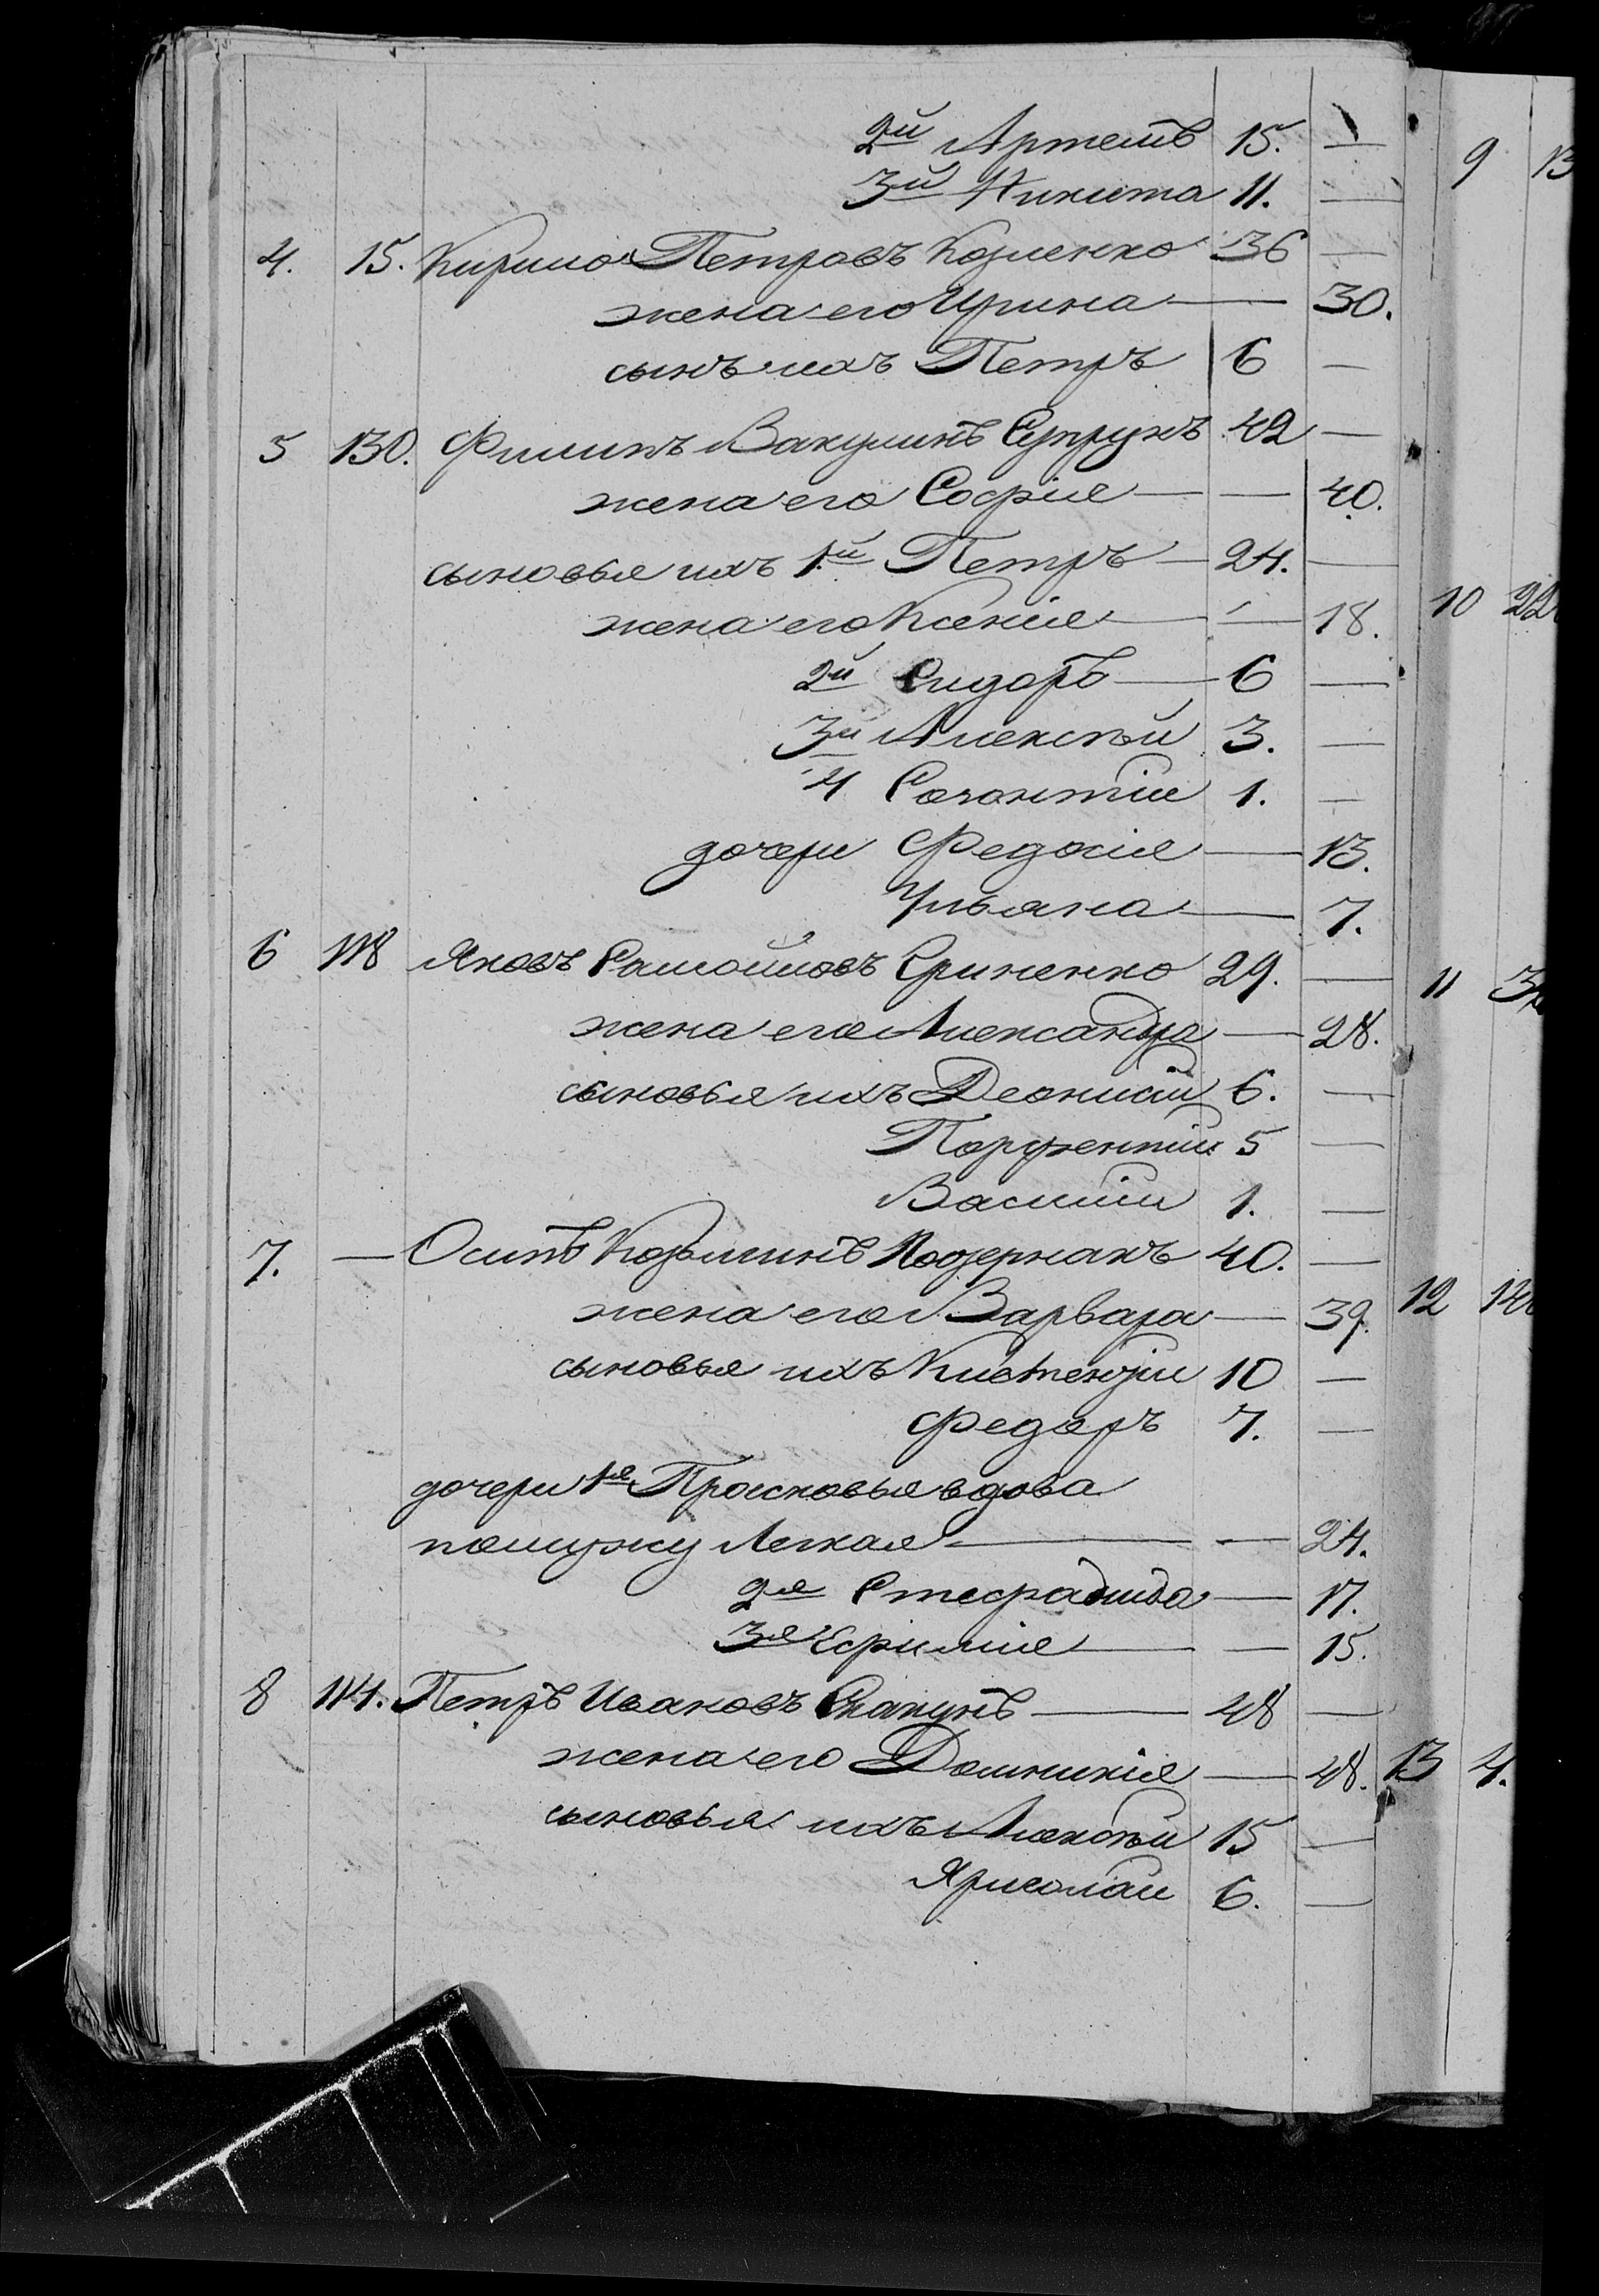 2й Артемъ 15. —
3й Никита 11. —
4. 15. Кирило Петровъ Козменко 36 —
жена его Ирина — 30.
сынъ ихъ Петръ 6 —
5 130. Филипъ Вакулинъ Супрунъ 42 —
жена его Софія — — 40.
сыновья ихъ 1й Петръ — 24. —
жена его Ксенія — — 18.
2й Сидоръ — 6 —
3й Алексѣй 3. —
4 1. —
дочери Федосія — 13.
Ульяна — 7.
6 118 Яковъ Самойловъ Гриненко 29. —
жена его Александра — 28.
сыновья ихъ Деонисій 6. —
Порфентій 5 —
Василій 1. —
7. — Осипъ Козьминъ 40. —
жена его Варвара — 39.
сыновья ихъ 10 —
Федоръ 7. —
дочери 1я Просковья вдова
помужу Легкая — — 24.
2я — 17.
3я Ефимія — — 15.
8 114. Петръ Ивановъ Скакунъ — 48 —
жена его Домникія — 48.
сыновья ихъ Алексѣй 15 —
6. —
9
10
11
12
13 4.